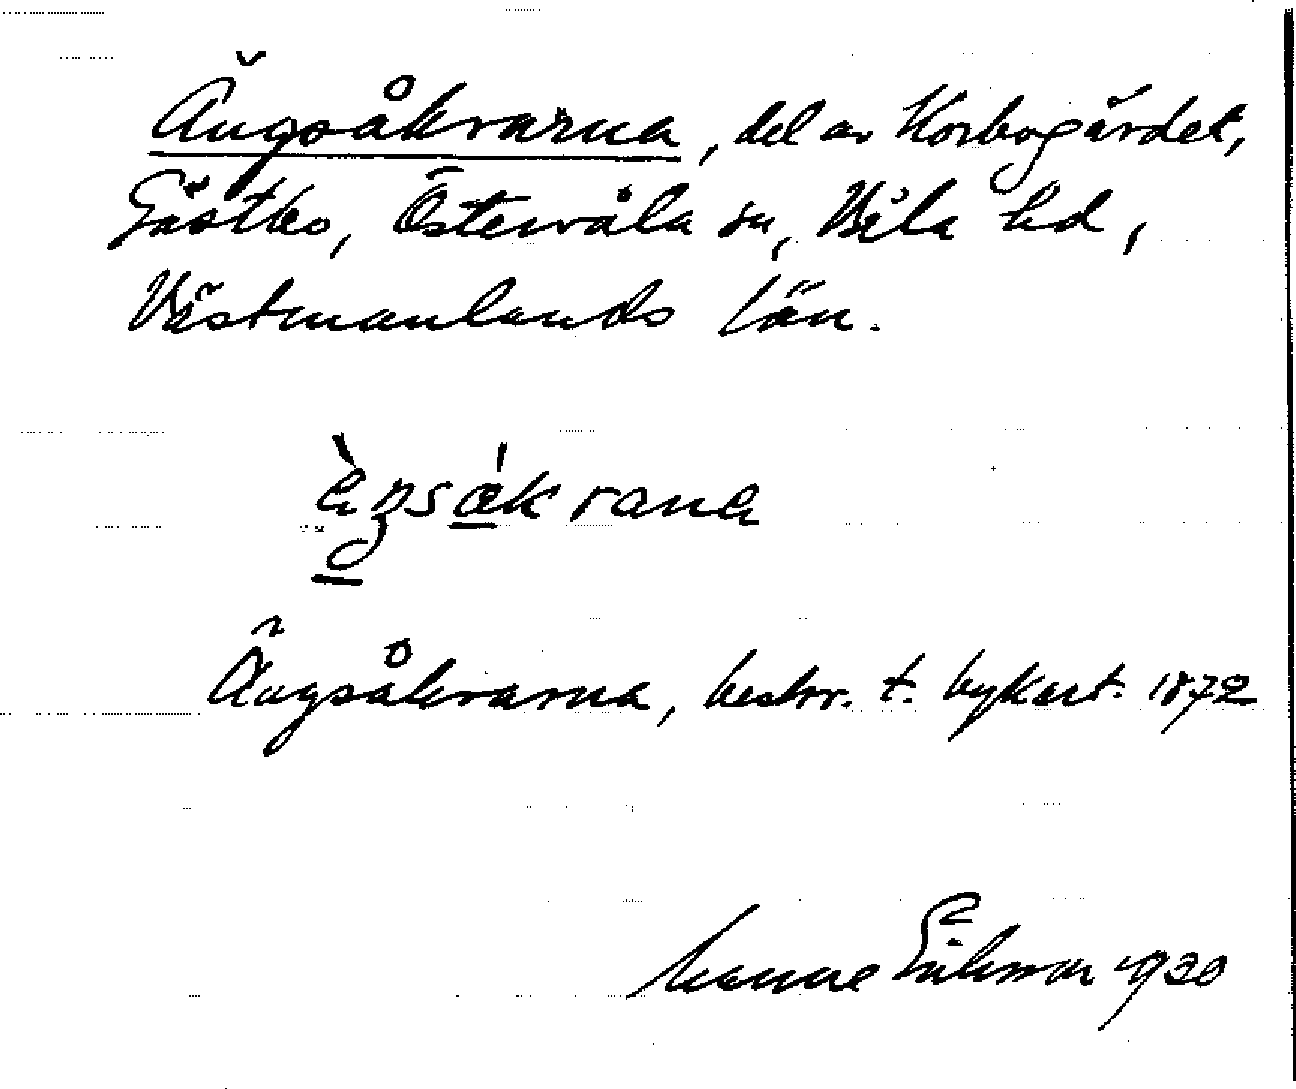 Ängsåkrarna, del av Korbogärdet,
Gästbo, Östervåla sn, Våla hd,
Västmanlands län.
Ängsåkrarna, beskr. t. bykart. 1872
Manne Eriksson 1930